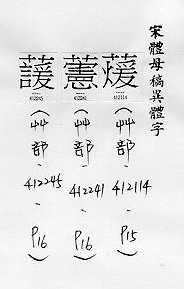 宋體母稿異體字
蕿
412114
(艸部-412114-P15)
藼
412241
(艸部-412241-P16)
412245
(艸部-412245-P16)